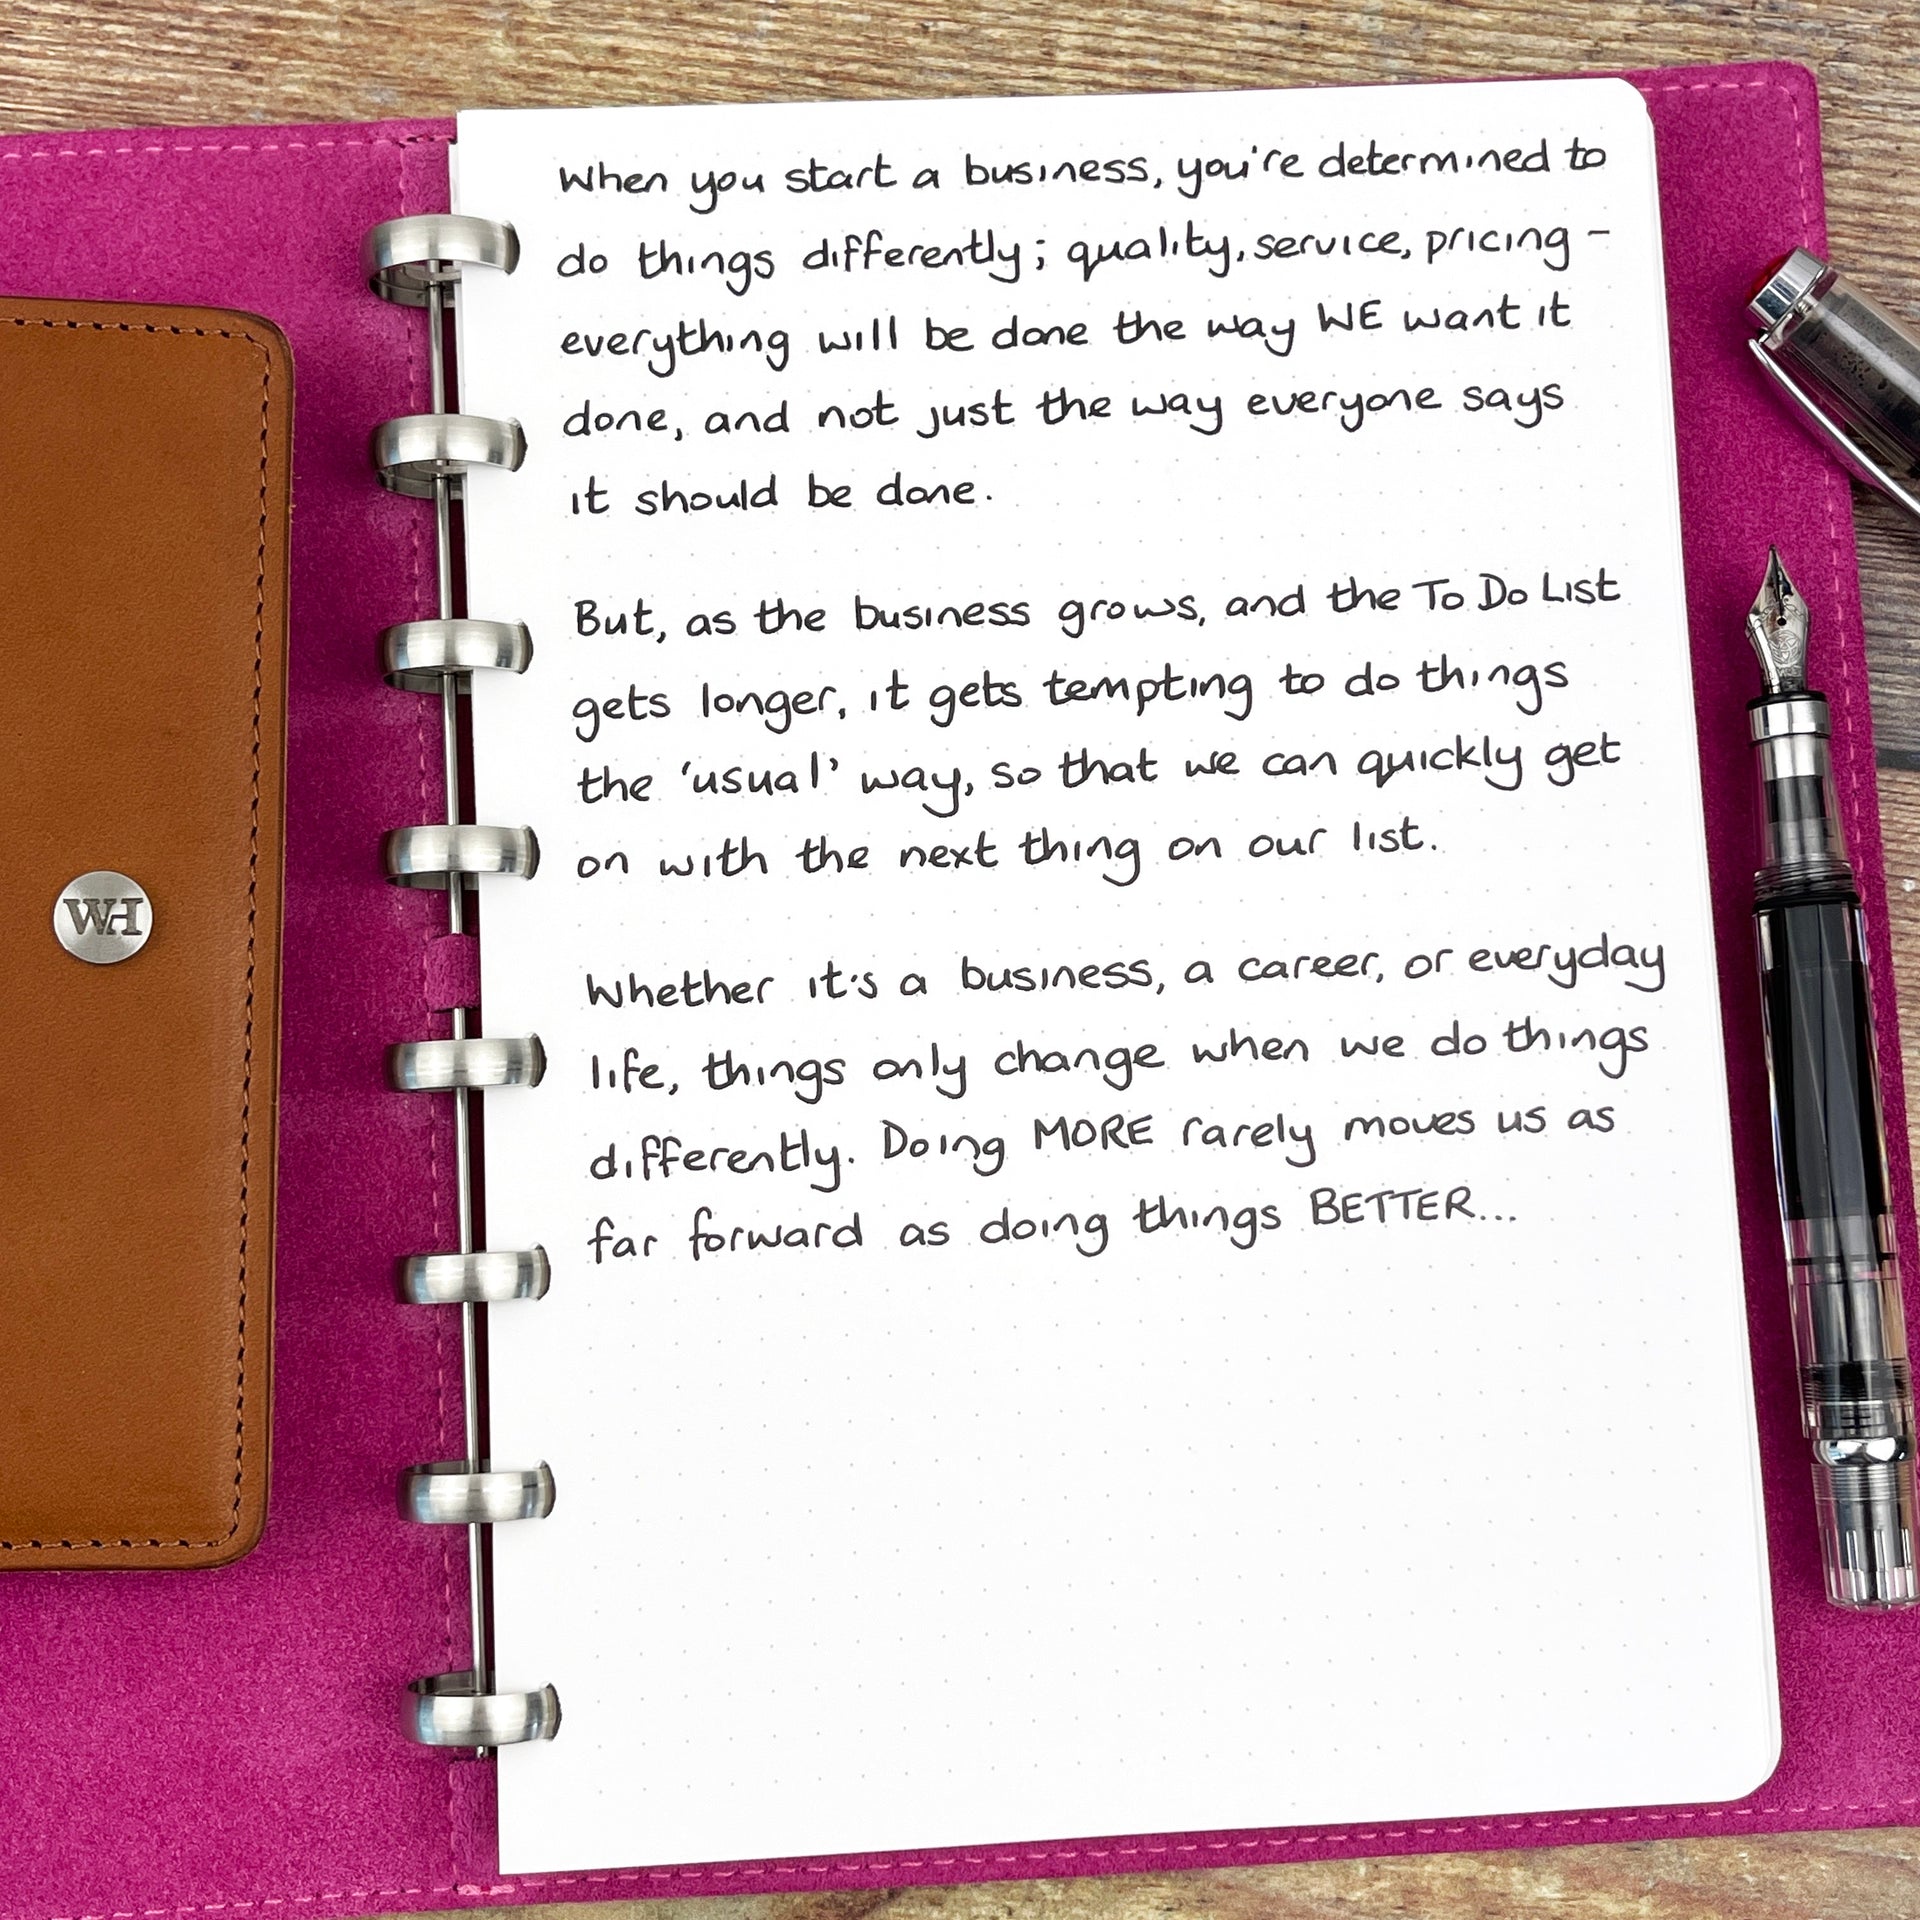 When you start a business, you're determined to
do things differently; quality, service, pricing -
everything will be done the way WE want it
done, and not just the way everyone says
it should be done.
But, as the business grows, and the To Do List
gets longer, it gets tempting to do things
the 'usual' way, so that we can quickly get
on with the next thing on our list.
Whether it's a business, a career, or everyday
life, things only change when we do things
differently. Doing MORE rarely moves us as
far forward as doing things BETTER...
WH